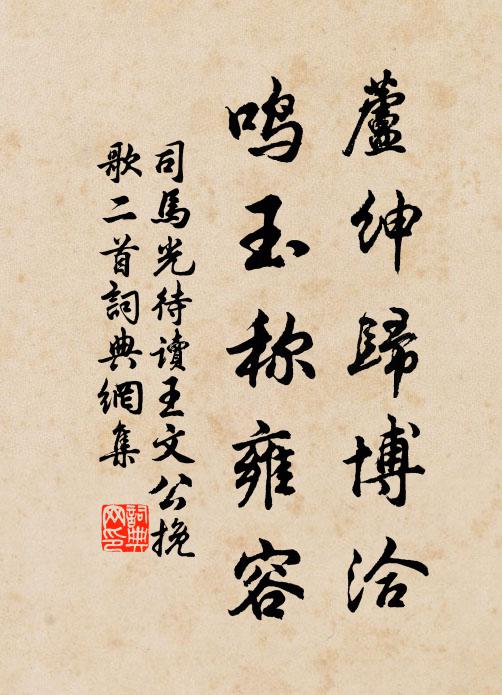 蘆紳歸博洽
鸣玉称雍容
司馬光待讀王文公挽
歌二首詞典網集
詞典网印